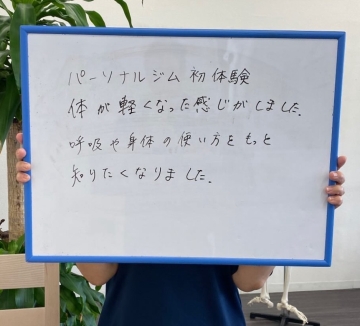 パーソナルジム初体験
体が軽くなった感じがしました.
呼吸や身体の使い方をもっと
知りたくなりました.